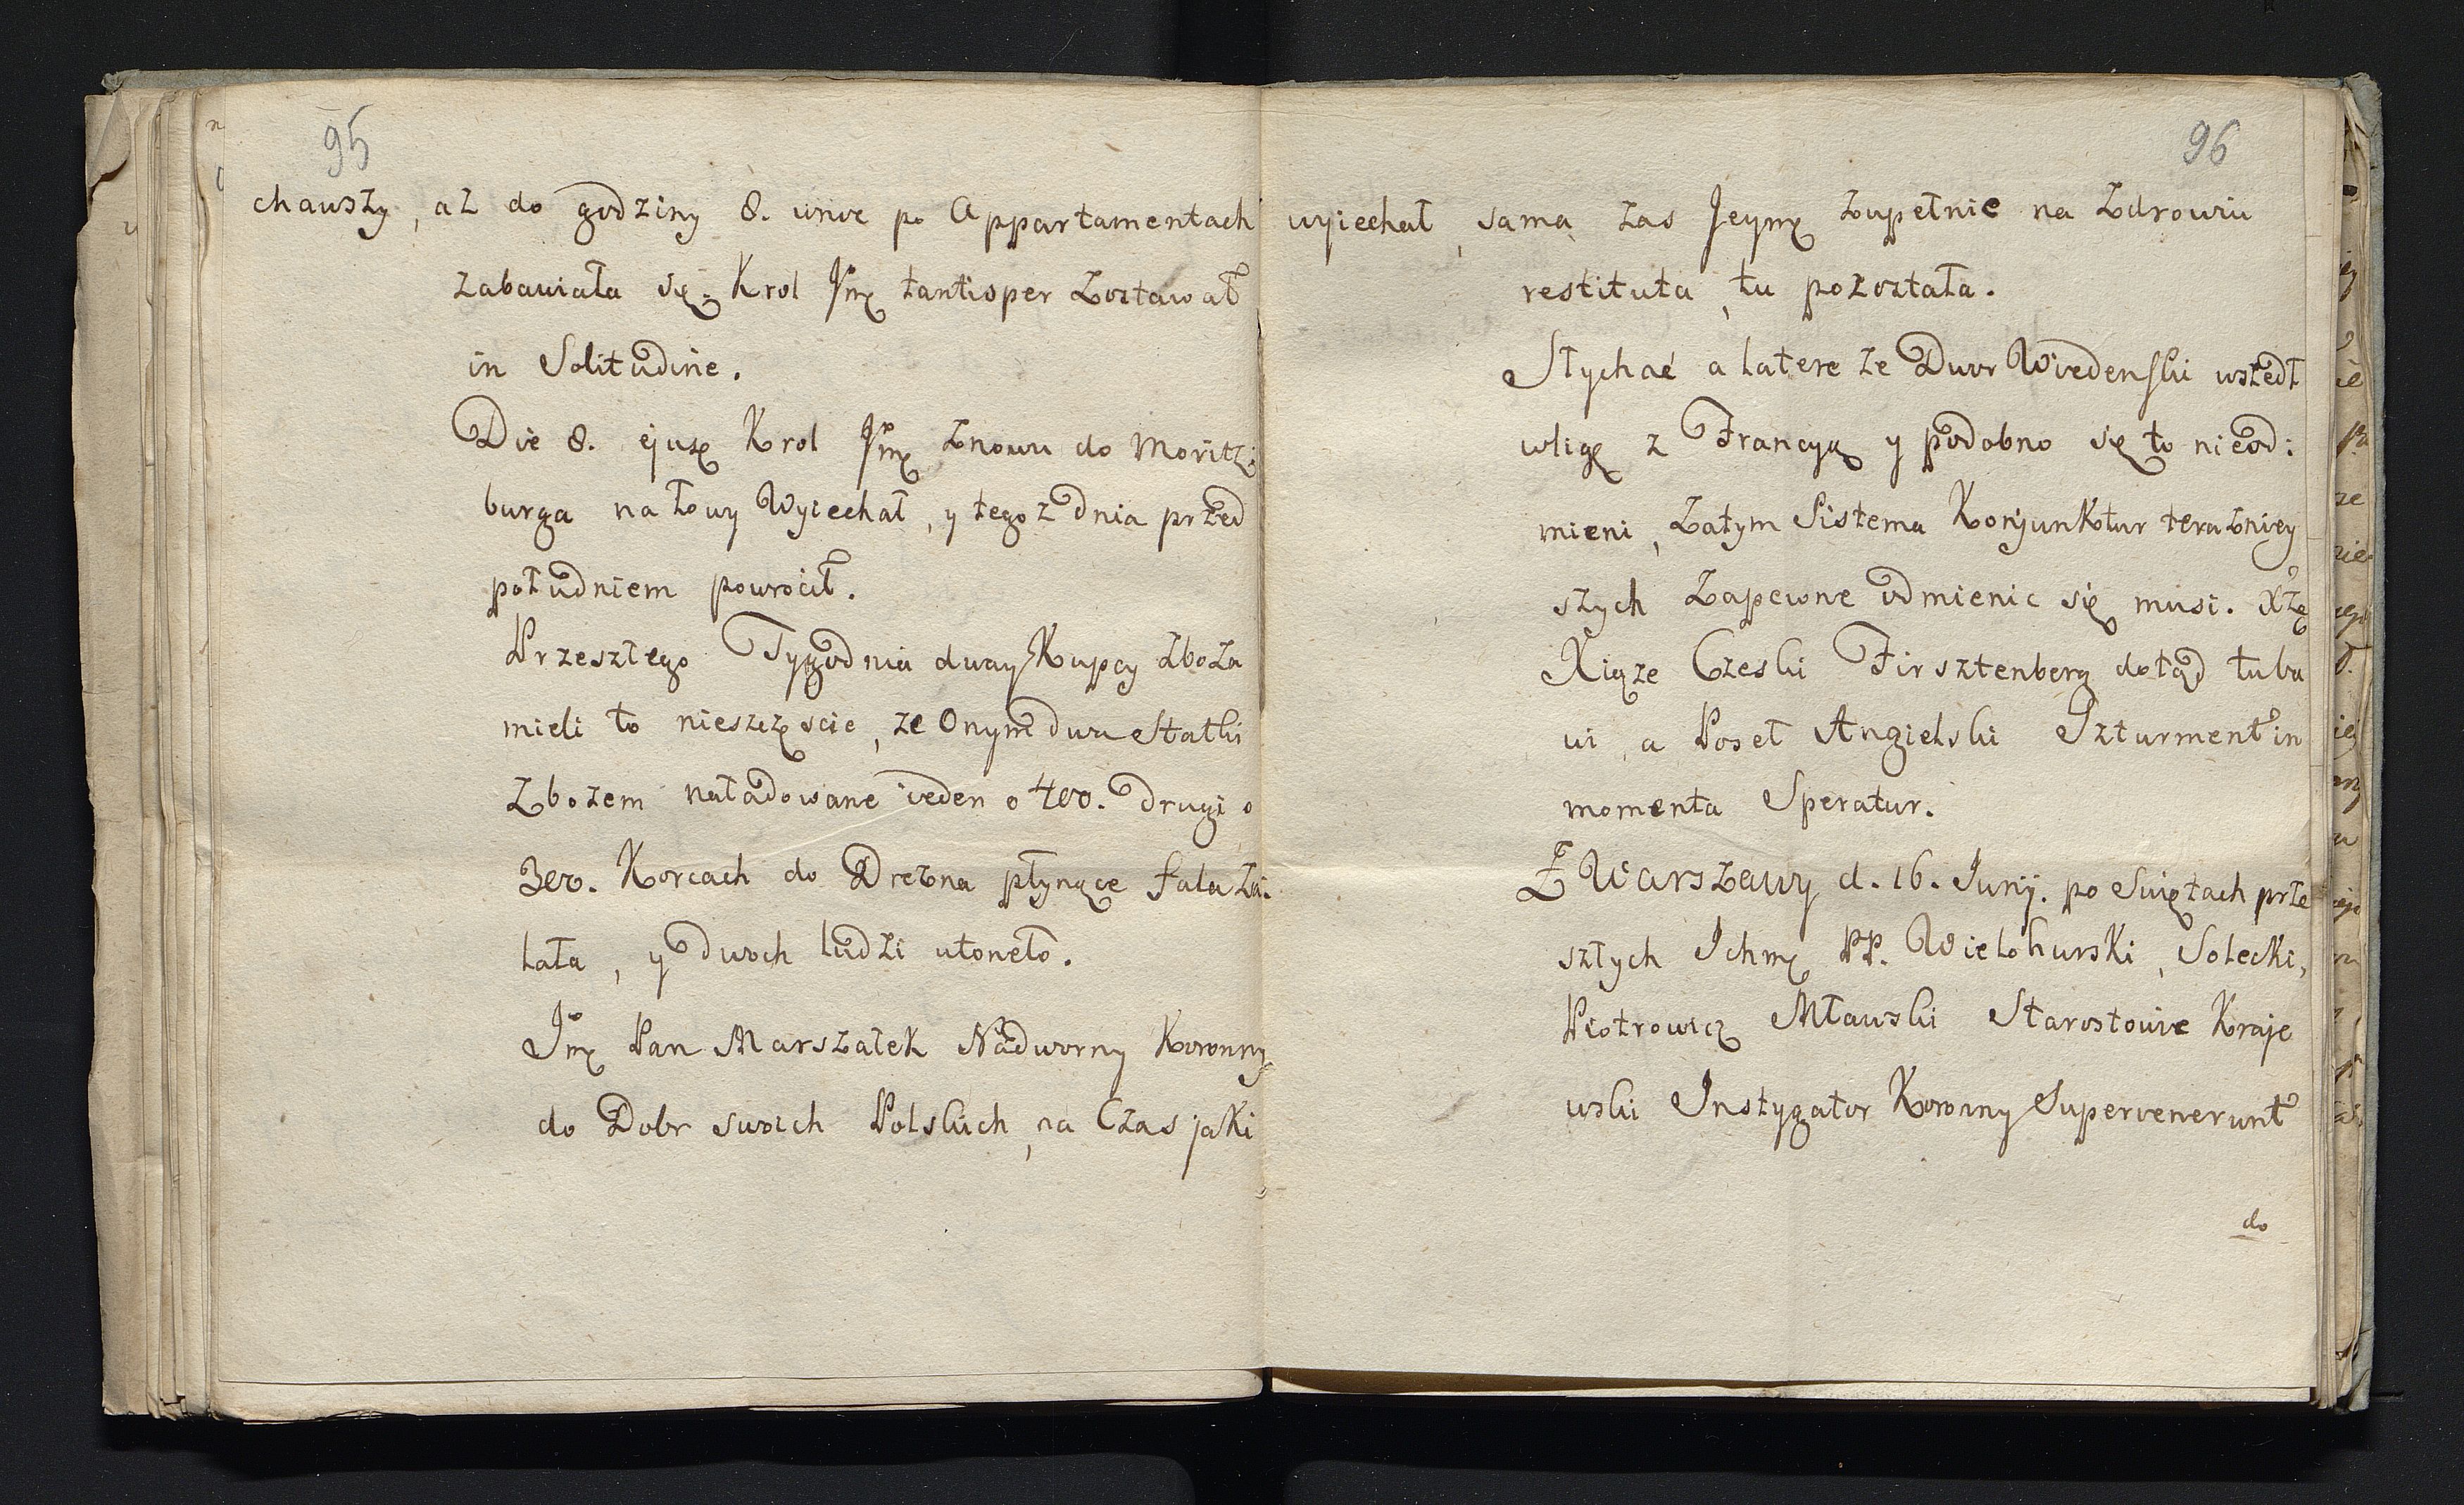 95
chawszy, az do godziny 8. wnoc po Appartamentach
zabawiała się. Krol Jmę tantisper Zostawał
in Solitudine.
Die 8. ejusę Krol Jmę znowu do Moritz:
burga na łowy Wyiechał, y tegoz dnia przed
południem powrócił.
Przeszłego Tygodnia dway Kupcy zboza
mieli to nieszczęscie, ze Onym dwa Statki
Zbozem naładowane ieden o 400. drugi o
300. Korcach do Drezna płynące fala za:
lała, y dwoch ludzi utoneło.
Jmę Pan Marszałek Nadworny Koronny
do Dobr swoich Polskich, na Czas jaki
96
wyiechał, sama zas Jeymę zupełnie na Zdrowiu
restituta, tu pozostała.
Słychać a latere ze Dwor Wiedenski wszedł
wligę z Francyą y podobno się to nieod:
mieni, Zatym Sistema Konjunktur terazniey
szych Zapewne odmienic się musi. Xżę
Xiąze Czeski Firsztenberg dotąd tuba
wi, a Poseł Angielski Szturment in
momenta Speratur.
Z Warszawy d. 16. Junij. po Swiętach prze
szłych Ichmę PP. Wielohurski, Solecki,
Piotrowicz Mławski Starostowie Kraje
wski Instygator Koronny Supervenerunt
do